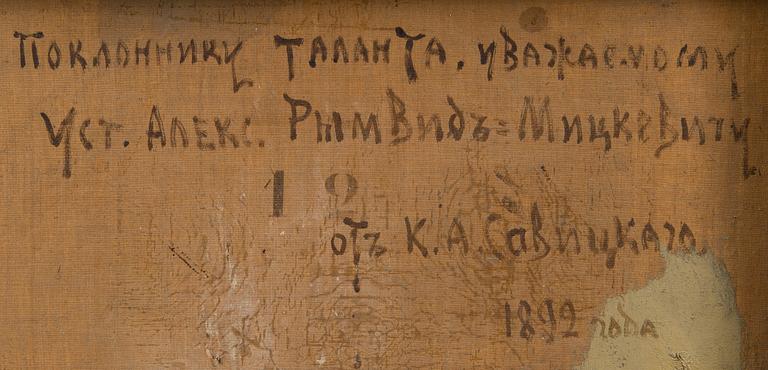 Поклоннику таланта. уважаемому
Уст. Алекс. Рымвидъ=Мицкевичу
12
отъ К. А. Савицкаго.
1892 года